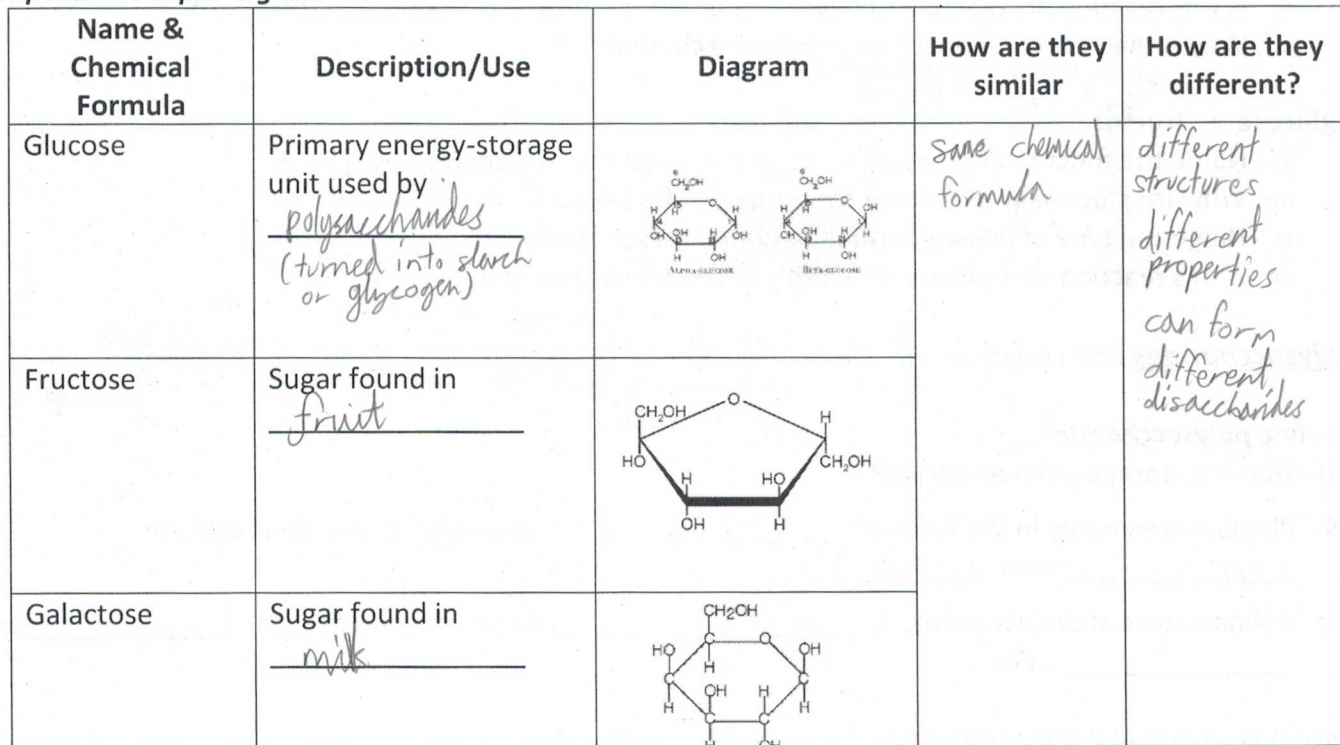 Name &
Chemical
Formula
Description/Use
Diagram
How are they
similar
How are they
different?
Glucose
Primary energy-storage
unit used by
polysaccharides
(turned into starch
or glycogen)
6
CH₂OH
H
O
H
H
OH
H
OH
OH
H
OH
ALPHA-GLUCOSE
6
CH₂OH
H
O
OH
H
OH
H
OH
H
H
OH
BETA-GLUCOSE
same chemical
formula
different
structures
different
properties
can form
different
disaccharides
Fructose
Sugar found in
fruit
CH₂OH
O
H
HO
CH₂OH
H
HO
OH
H
Galactose
Sugar found in
milk
CH2OH
C
O
HO
H
OH
C
C
OH
H
H
H
C
C
H
OH